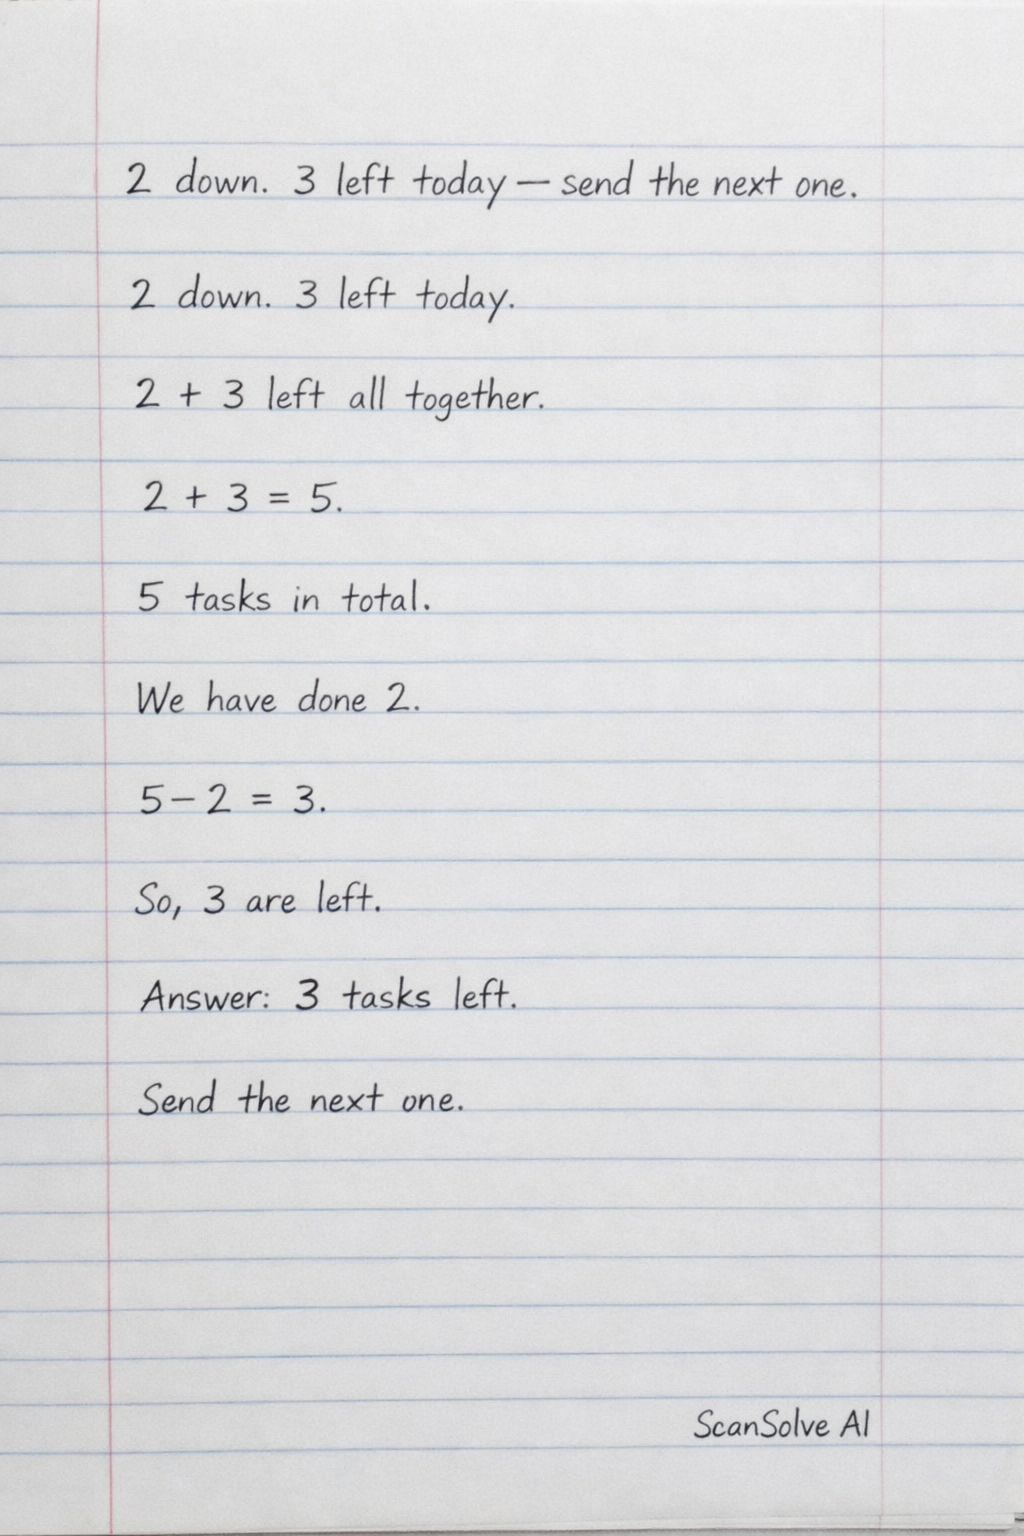 2 down. 3 left today — send the next one.
2 down. 3 left today.
2 + 3 left all together.
2 + 3 = 5.
5 tasks in total.
We have done 2.
5 - 2 = 3.
So, 3 are left.
Answer: 3 tasks left.
Send the next one.
ScanSolve AI